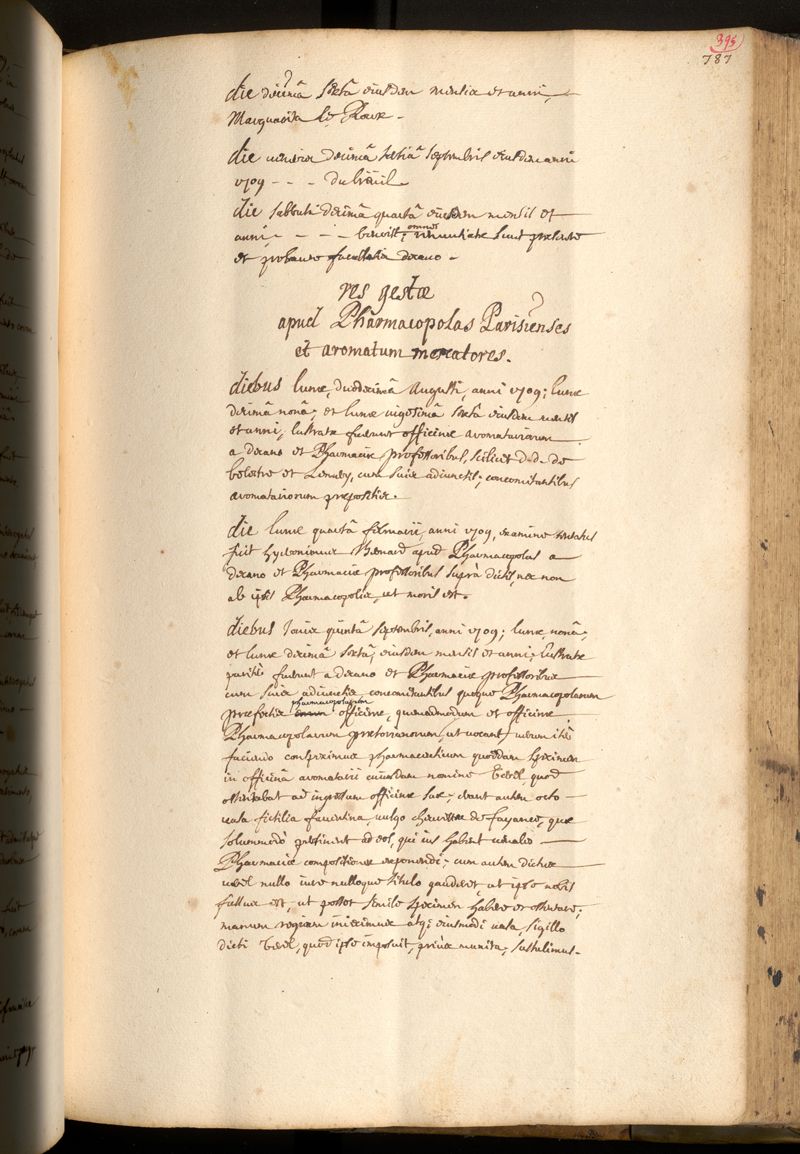 395
787
die decimâ sextâ eiusdem mensis et anni,
Marguarita le Roux.
die veneris decimâ tertiâ septembris eiusdem anni
1709 - - - dubreüil.
die sabbathi decimâ quartâ eiusdem mensis et
anni, - - - - benoist; omnes renuntiatae sunt
et probante facultatis decano.
res gestæ
apud Pharmacopolas Parisienses
et aromatum mercatores.
diebus lunæ, duodecimâ Augusti, anni 1709; lunæ
decimâ nonâ; et lunæ vigesimâ sextâ eiusdem mensis
et anni, lustratæ fuerunt officinæ aromatariorum
a decano et Pharmaciæ professoribus, scilicet d.d. de
belestre et Lemery, cum suis adiunctis; concomitantibus
aromatariorum præpositis.
die lunæ quartâ februarii, anni 1709, examine tentatus
fuit hyeronimus Benard apud Pharmacopolas a
decano et Pharmaciæ professoribus suprà dictis, nec non
ab ipsis Pharmacopolis, ut moris est.
diebus Jovis quintâ septembris, anni 1709; lunæ, nonâ;
et lunæ decimâ sextâ, eiusdem mensis et anni, lustratæ
pariter fuerunt a decano et Pharmaciæ professoribus
cum suis adiunctis, concomitantibus quoque Pharmacopolarum
præfectis pharmacopolarum officinæ, quemadmodum et officinæ
Pharmacopolarum prætorianorum, ut vocant; verum iter
faciendo conspeximus pharmaceuticum quoddam specimen
in officinâ aromatarii cuiusdam nomine Terel, quod
ostentabat ad ingressum officinæ suæ; erant autem octo
vasa fictilia faventina, vulgo chevrettes de fayance, quæ
solummodò pertinent ad eos, qui ius habent venales
Pharmaciæ compositiones exponendi; cum autem dictus
terel nullo iure nulloque titulo gauderet, ut ipse nobis
fassus est, ut posset simile specimen habere et ostentare;
manum regiam iniecimus atqe eiusmodi vasa, sigillo
dicti Terel, quod ipse imposuit, prius munita, sustulimus.